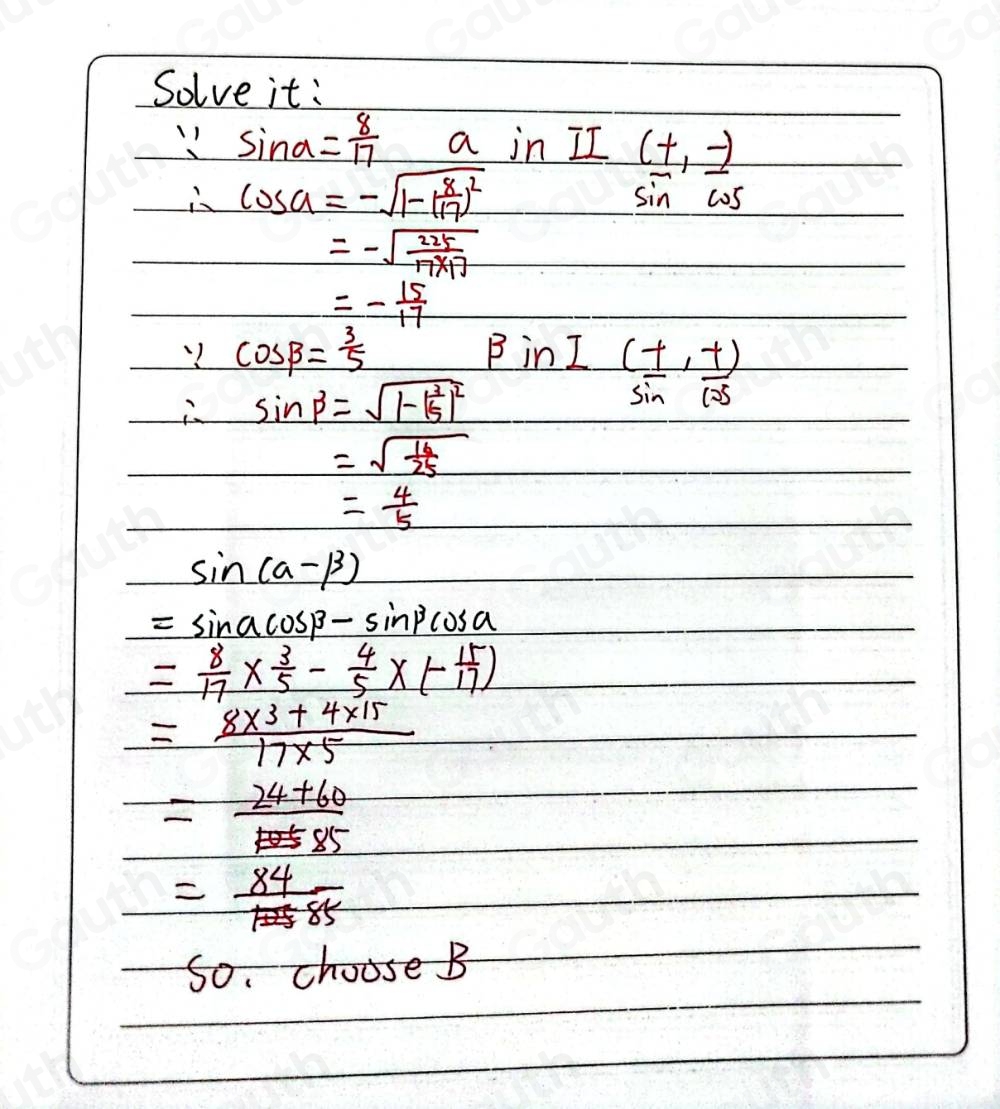 Solve it:
∵ sina = 8/17 a in II (+, -)
sin cos
∴ cosa = -√(1-(8/17)²)
= -√(225/(17×17))
= -15/17
∵ cosβ = 3/5 β in I (+, +)
sin cos
∴ sinβ = √(1-(3/5)²)
= √(16/25)
= 4/5
sin(a-β)
= sina cosβ - sinβ cosa
= 8/17 × 3/5 - 4/5 × (-15/17)
= (8×3 + 4×15)/(17×5)
= (24+60)/85
= 84/85
So. choose B
Gauth